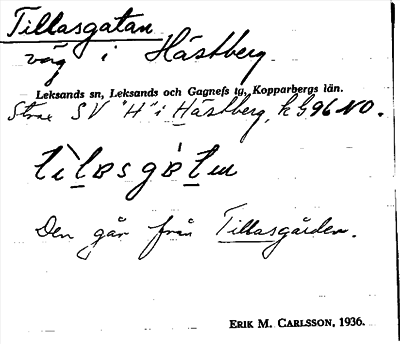 Tillasgatan
väg i Hästberg.
Leksands sn, Leksands och Gagnefs tg, Kopparbergs län.
Strax SV "H" i Hästberg, k G96 NO.
Den går från Tillasgården.
ERIK M. CARLSSON, 1936.